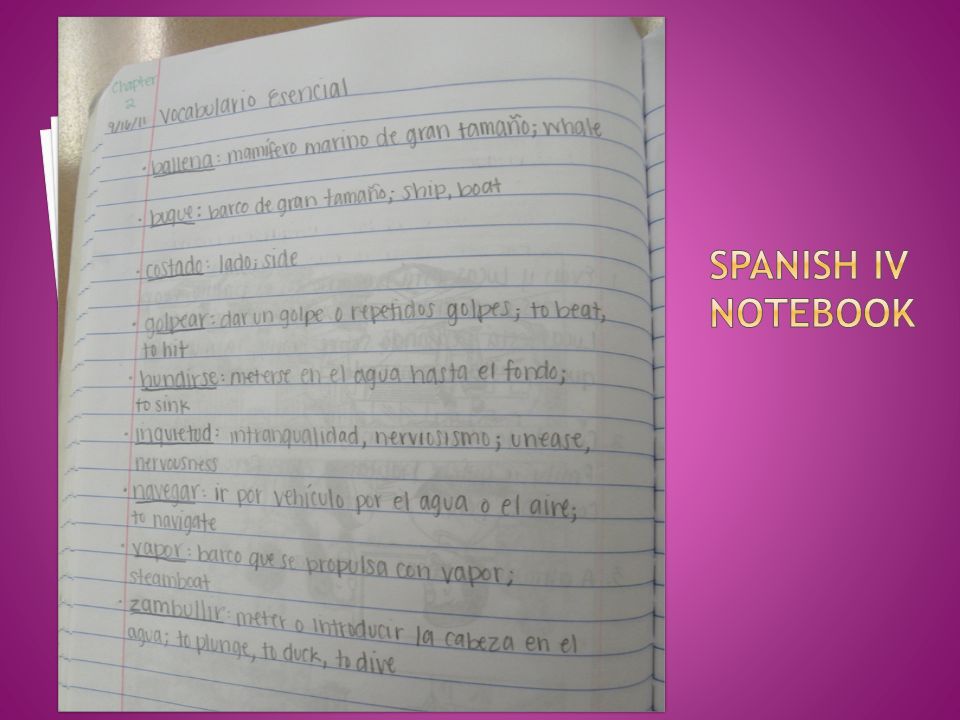 Chapter
2
9/16/11 Vocabulario Esencial
· ballena: mamífero marino de gran tamaño; whale
· buque: barco de gran tamaño; ship, boat
· costado: lado; side
· golpear: dar un golpe o repetidos golpes; to beat,
to hit
· hundirse: meterse en el agua hasta el fondo;
to sink
· inquietud: intranqualidad, nerviosismo; unease,
nervousness
· navegar: ir por vehículo por el agua o el aire;
to navigate
· vapor: barco que se propulsa con vapor;
steamboat
· zambullir: meter o introducir la cabeza en el
agua; to plunge, to duck, to dive
SPANISH IV
NOTEBOOK